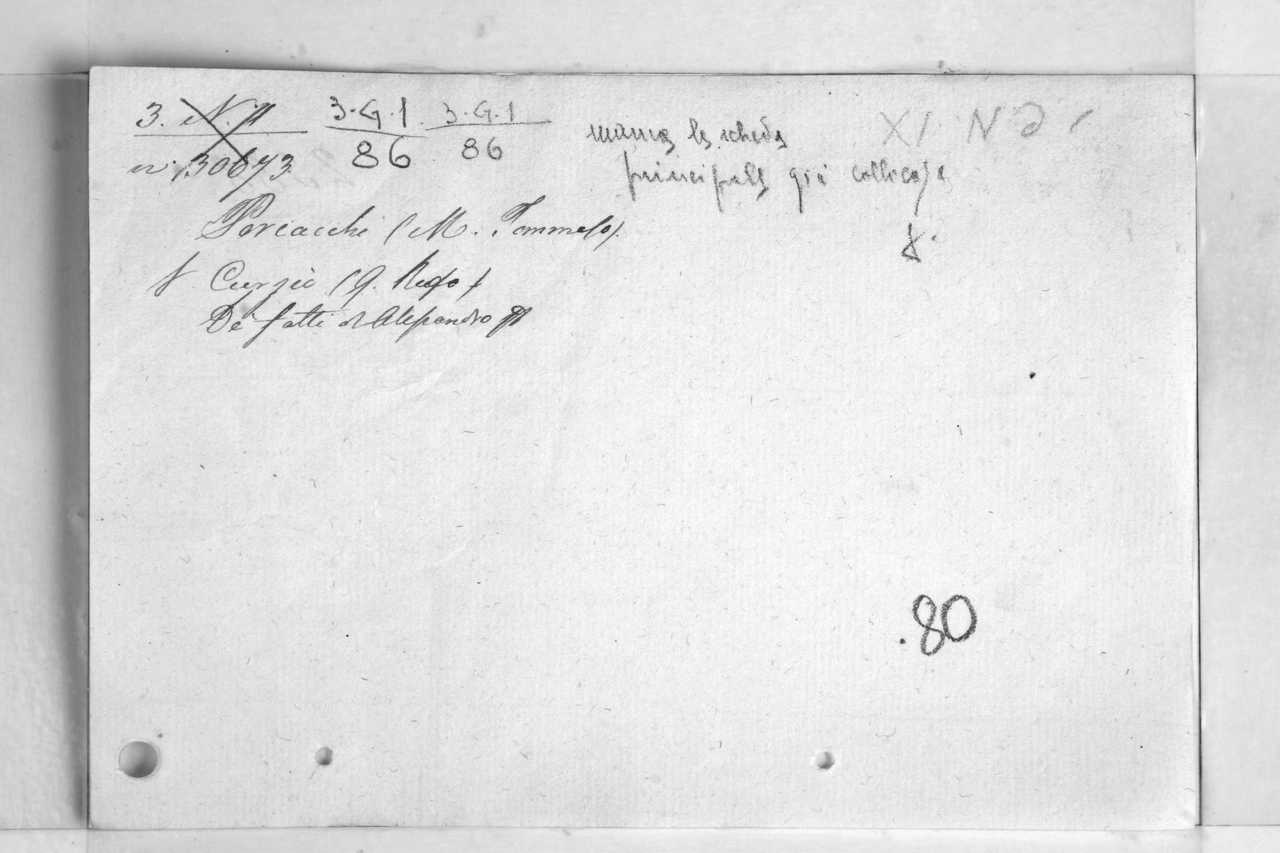 3. N. 11 3.G.1 3.G.1
n. 30673 86 86
manca la scheda XI N
principale già collocata
Porcacchi (M. Tommaso).
Curzio (Q. Rufo)
De' fatti d'Alessandro M
.80